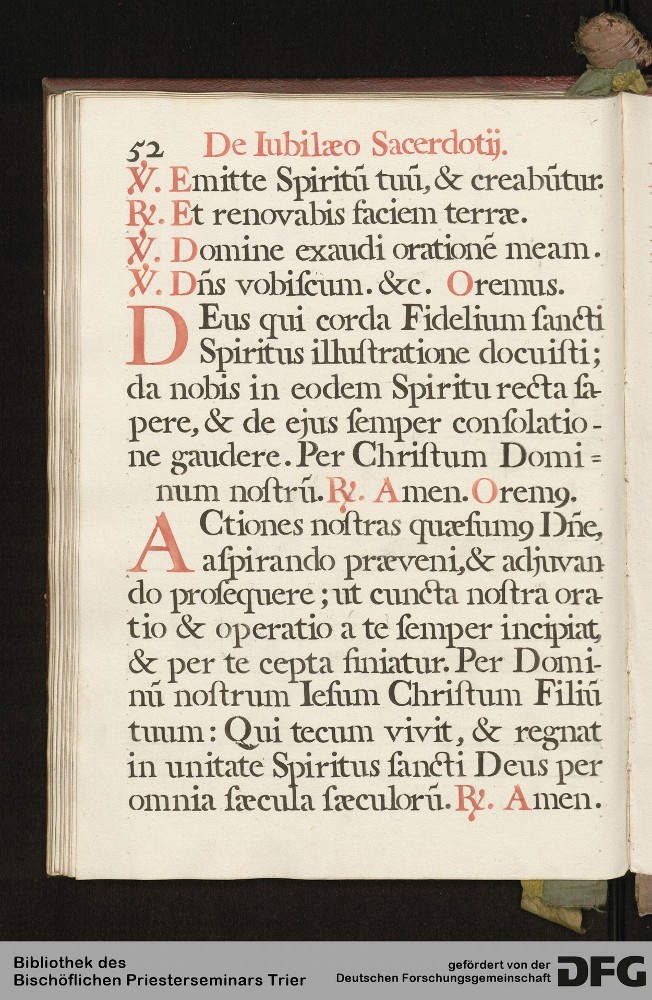 52 De Iubilæo Sacerdotij.
℣. Emitte Spiritũ tuũ, & creabũtur.
℟. Et renovabis faciem terræ.
℣. Domine exaudi orationẽ meam.
℣. Dñs vobiſcum. &c. Oremus.
DEus qui corda Fidelium ſancti
Spiritus illuſtratione docuiſti;
da nobis in eodem Spiritu recta ſa-
pere, & de ejus ſemper conſolatio-
ne gaudere. Per Chriſtum Domi=
num noſtrũ. ℟. Amen. Oremꝰ.
ACtiones noſtras quæſumꝰ Dñe,
aſpirando præveni, & adjuvan-
do proſequere; ut cuncta noſtra ora-
tio & operatio a te ſemper incipiat,
& per te cepta finiatur. Per Domi-
nũ noſtrum Ieſum Chriſtum Filiũ
tuum: Qui tecum vivit, & regnat
in unitate Spiritus ſancti Deus per
omnia ſæcula ſæculorũ. ℟. Amen.
Bibliothek des
Bischöflichen Priesterseminars Trier
gefördert von der
Deutschen Forschungsgemeinschaft
DFG